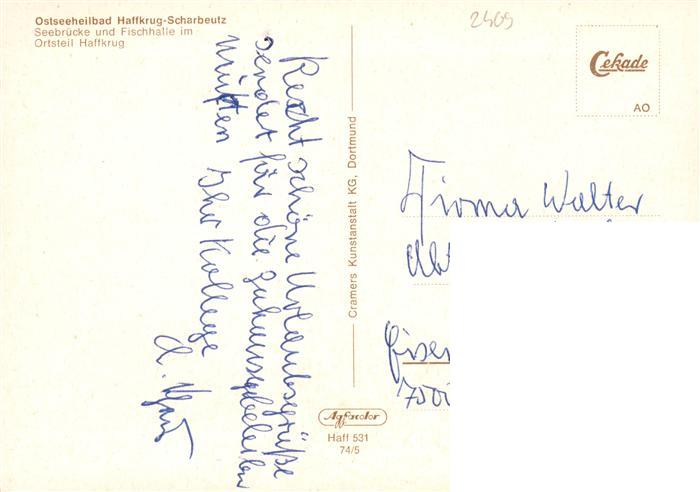 Ostseeheilbad Haffkrug-Scharbeutz
Seebrücke und Fischhalle im
Ortsteil Haffkrug
2409
Cekade
AO
Recht schöne Urlaubsgrüße
sendet für die zuhausegebliebenen
Ihr Kollege
Cramers Kunstanstalt KG, Dortmund
Firma Walter
Abt
Eisen
Agfacolor
Haff 531
74/5